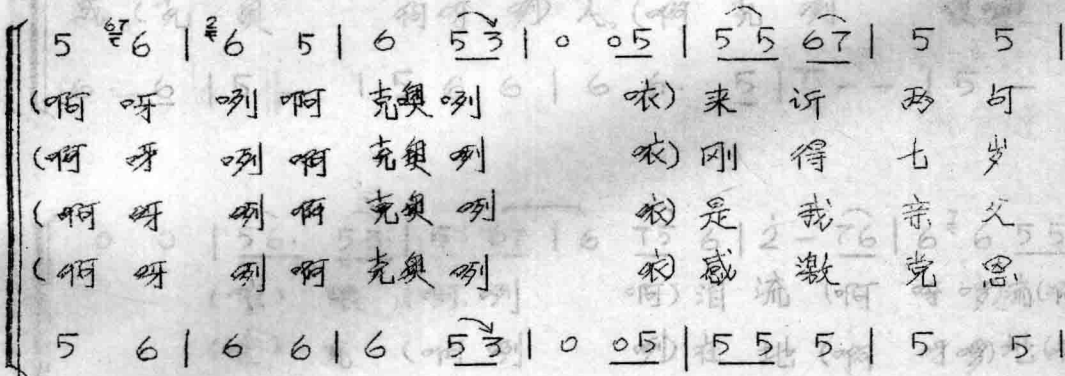 5 67 6 | 2 6 5 | 6 5 3 | 0 05 | 5 5 67 | 5 5 |
(啊 呀 咧 啊 克奥 咧 咴) 来 䜣 两 句
(啊 呀 咧 啊 克奥 咧 咴) 刚 得 七 岁
(啊 呀 咧 啊 克奥 咧 咴) 是 我 亲 父
(啊 呀 咧 啊 克奥 咧 咴) 感 激 党 恩
5 6 | 6 6 | 6 5 3 | 0 05 | 5 5 5. | 5 5 |